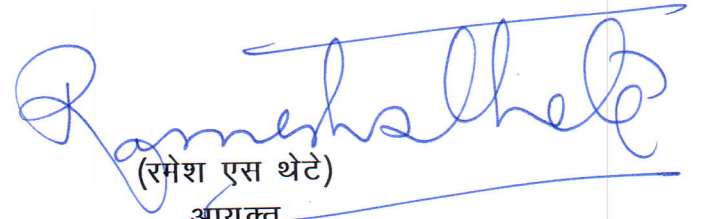 Rameshsthete
(रमेश एस थेटे)
आयुक्त